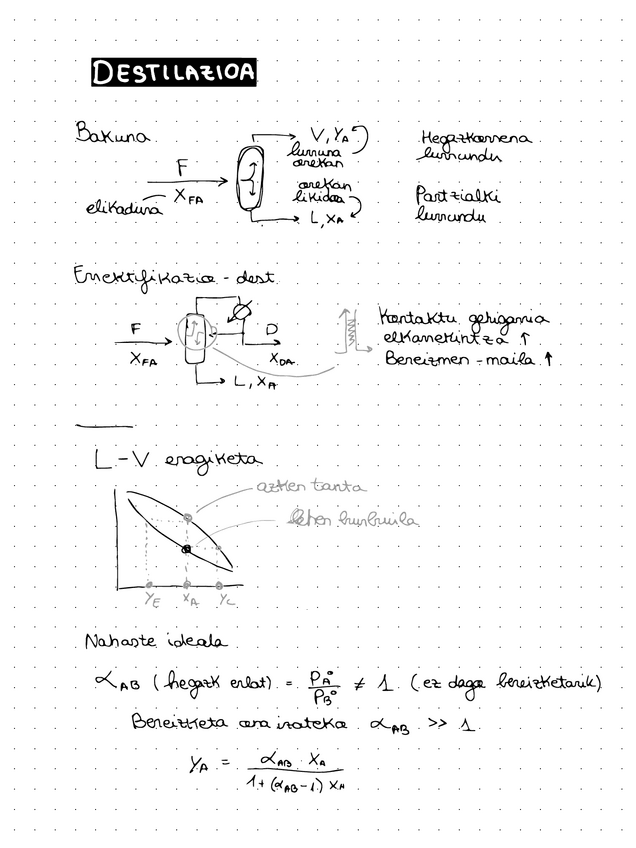 DESTILAZIOA
Bakuna
F
X_FA
elikadura
V, Y_A
lurruna orekan
orekan likidoa
L, X_A
Hegazkorrena lurrundu
Partzialki lurrundu
Errektifikazio - dest.
F
X_FA
D
X_DA
L, X_A
Kontaktu gehigarria
elkarrekintza ↑
Bereizmen - maila ↑
L - V eragiketa
azken tanta
lehen burbuila
Y_E X_A Y_C
Nahaste ideala
α_AB (hegazk erlat) = P_A° / P_B° ≠ 1 (ez dago bereizketarik)
Bereizketa ona izateko α_AB >> 1
Y_A = α_AB X_A / 1 + (α_AB - 1) X_A